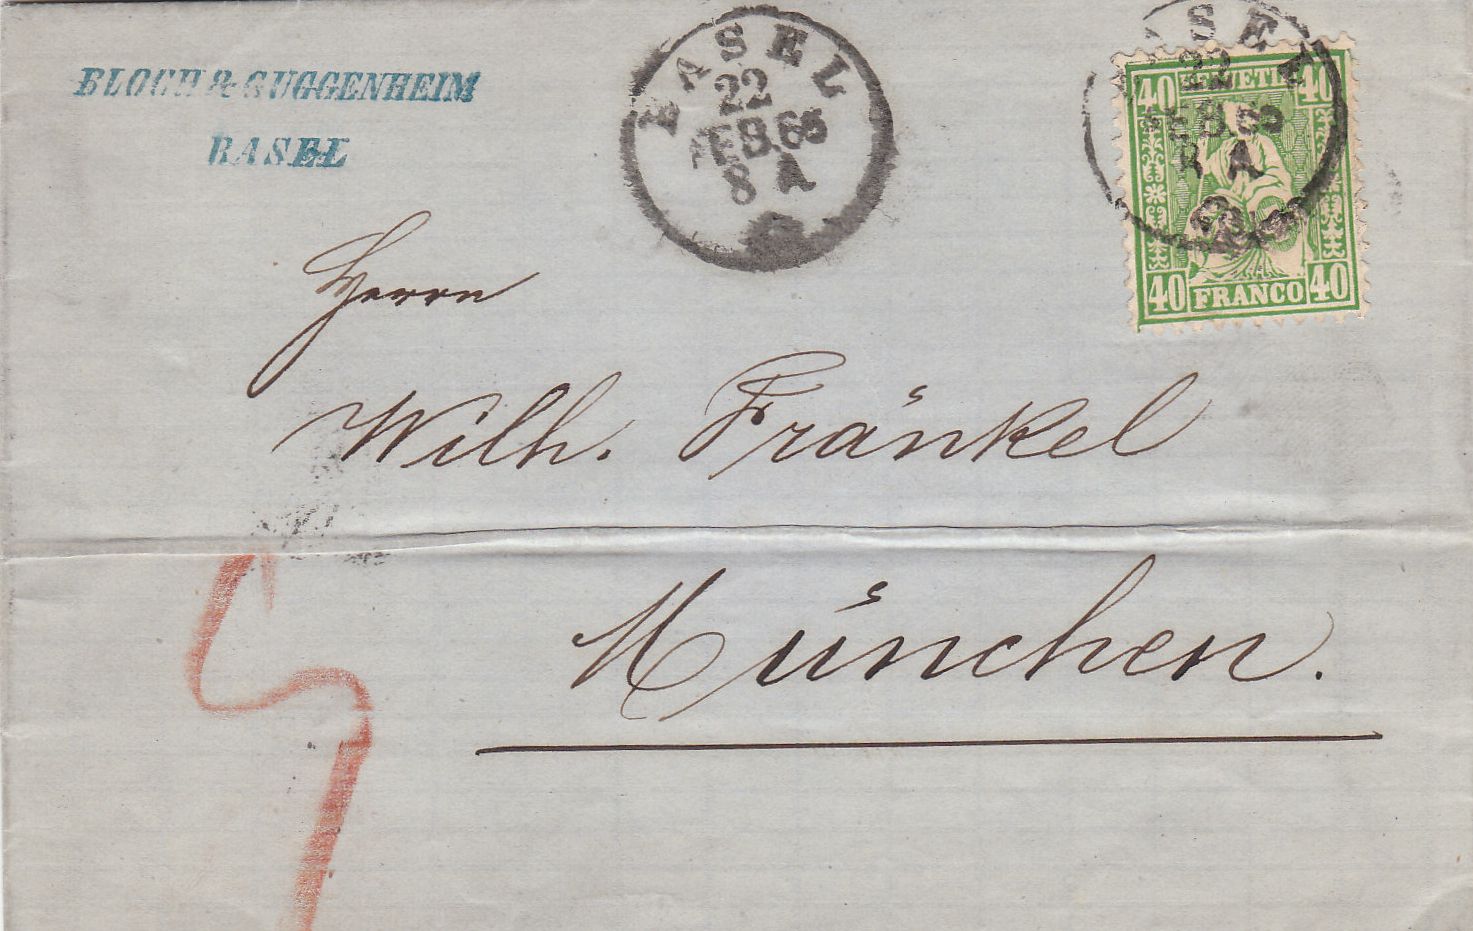 BLOCH & GUGGENHEIM
BASEL
BASEL
22
FEB.66
8 A
40 HELVETIA 40
40 FRANCO 40
Herrn
Wilh. Fränkel
München.